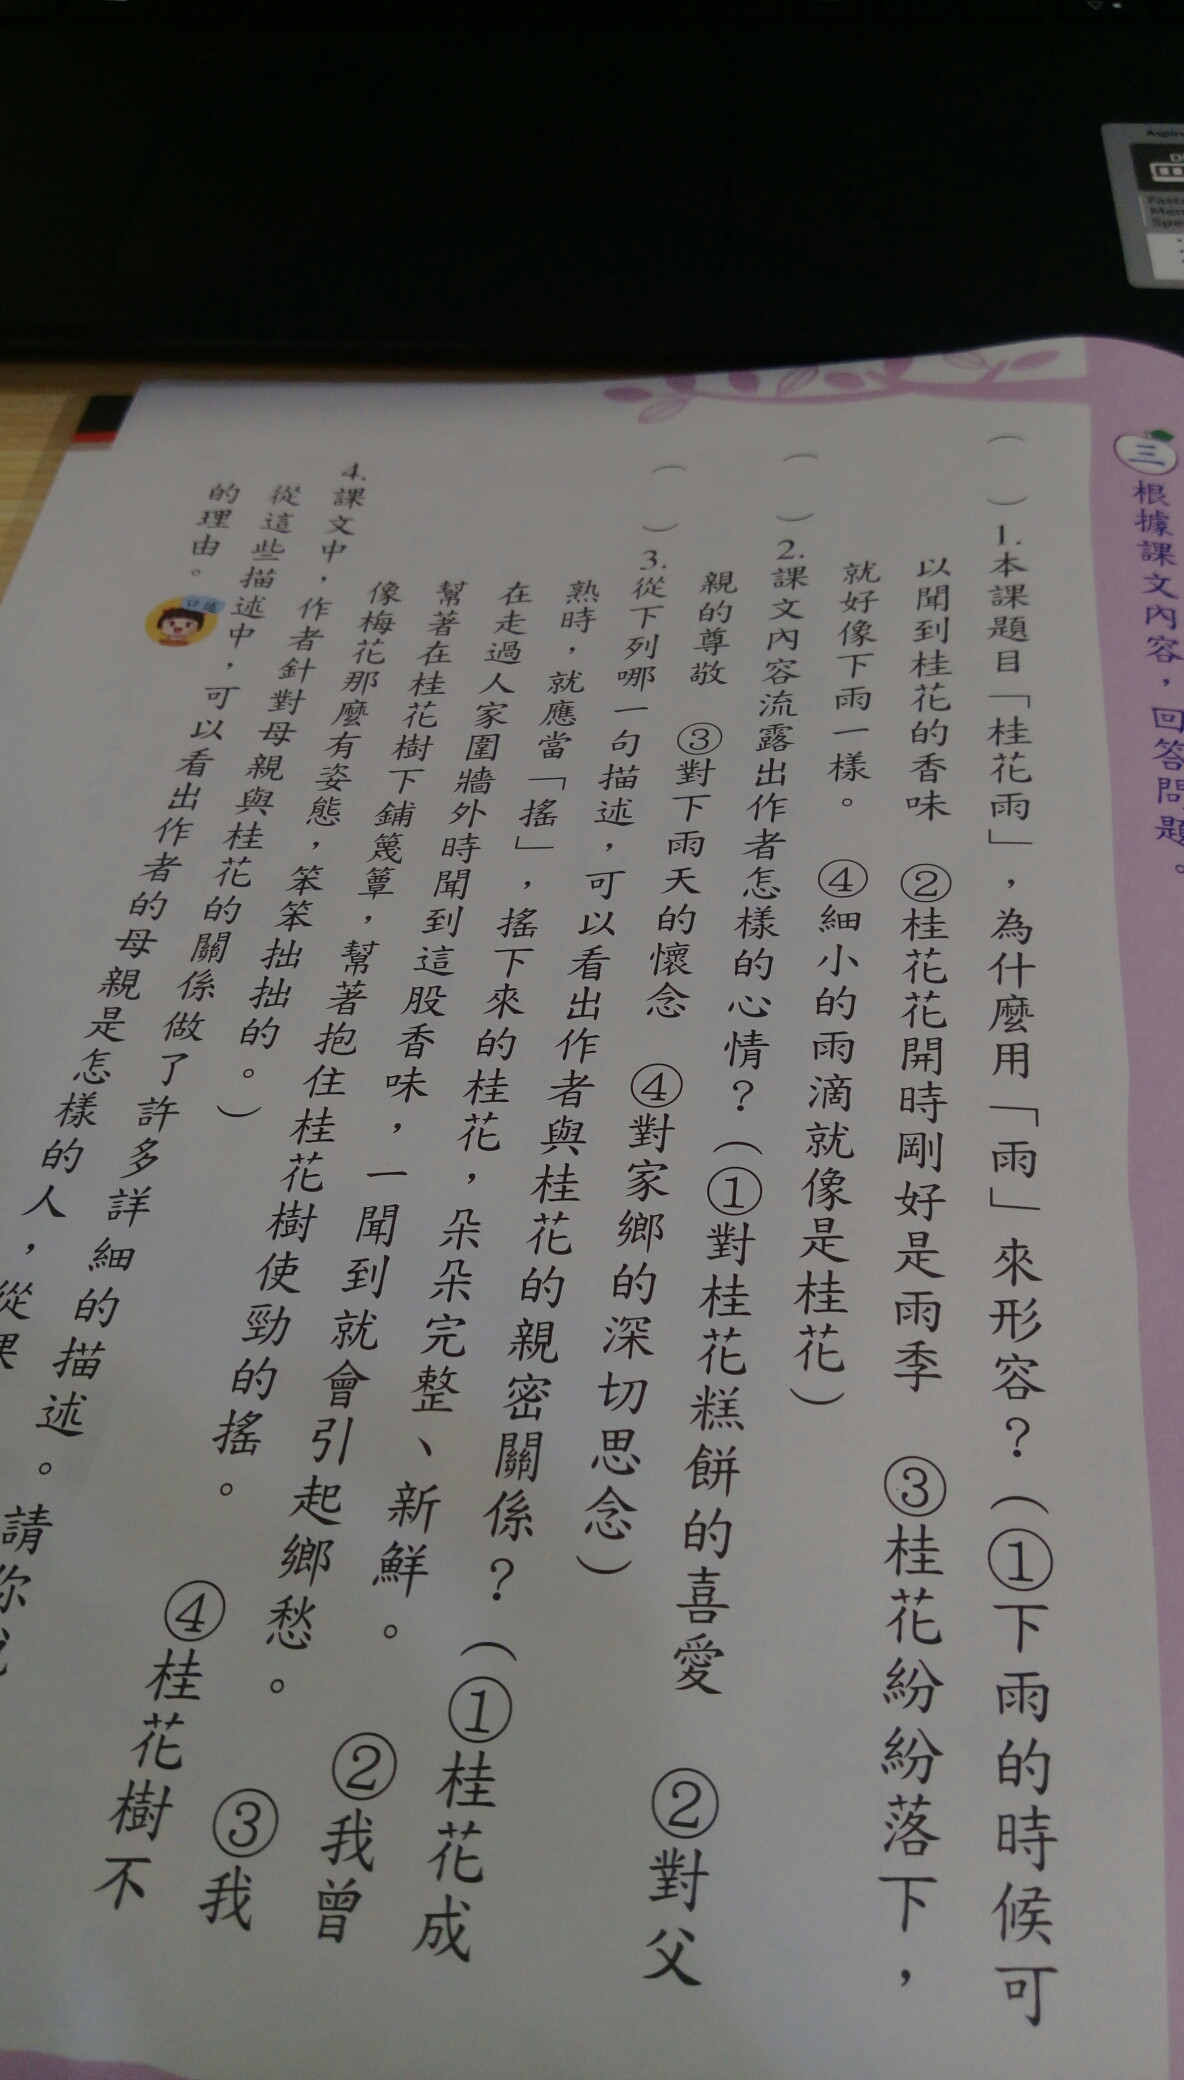 三 根據課文內容，回答問題。
（　）1.本課題目「桂花雨」，為什麼用「雨」來形容？（①下雨的時候可
以聞到桂花的香味　②桂花花開時剛好是雨季　③桂花紛紛落下，
就好像下雨一樣。　④細小的雨滴就像是桂花）
（　）2.課文內容流露出作者怎樣的心情？（①對桂花糕餅的喜愛　②對父
親的尊敬　③對下雨天的懷念　④對家鄉的深切思念）
（　）3.從下列哪一句描述，可以看出作者與桂花的親密關係？（①桂花成
熟時，就應當「搖」，搖下來的桂花，朵朵完整、新鮮。　②我曾
在走過人家圍牆外時聞到這股香味，一聞到就會引起鄉愁。　③我
幫著在桂花樹下鋪篾簟，幫著抱住桂花樹使勁的搖。　④桂花樹不
像梅花那麼有姿態，笨笨拙拙的。）
4.課文中，作者針對母親與桂花的關係做了許多詳細的描述。請你
從這些描述中，可以看出作者的母親是怎樣的人，從
的理由。
口述
Fast
Mem
Spe